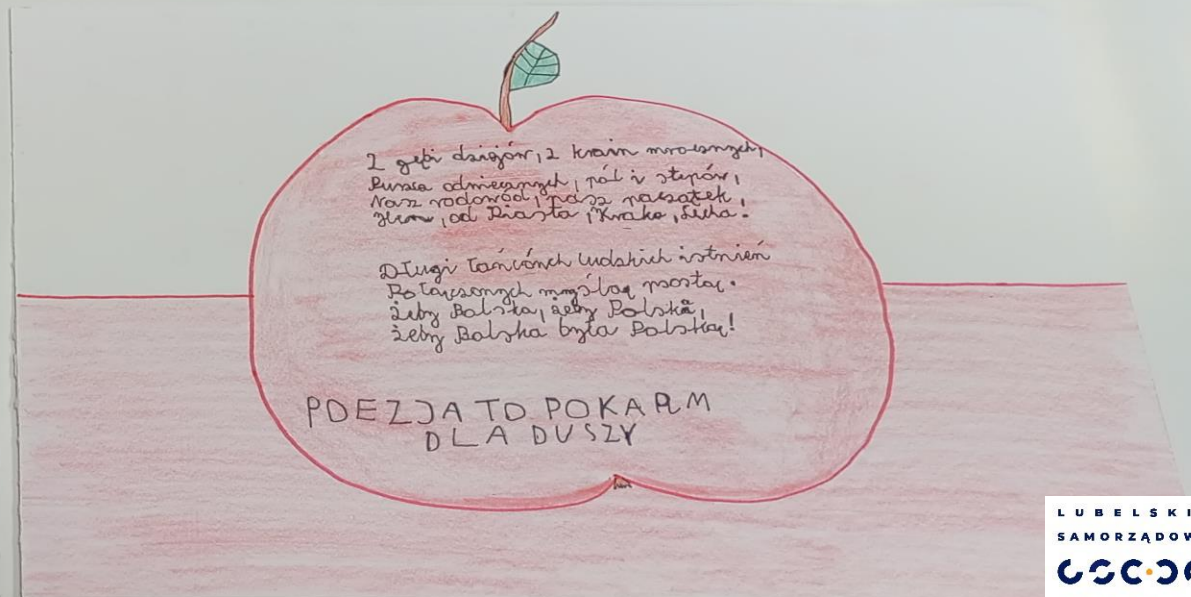 Z głębi dziejów, z krain mrocznych,
Puszcz odwiecznych, pól i stepów,
Nasz rodowód, nasz początek,
Hen, od Piasta, Kraka, Lecha.
Długi łańcuch ludzkich istnień
Połączonych myślą prostą.
Żeby Polska, żeby Polska,
żeby Polska była Polską!
POEZJA TO POKARM
DLA DUSZY
LUBELSKI
SAMORZĄDOW